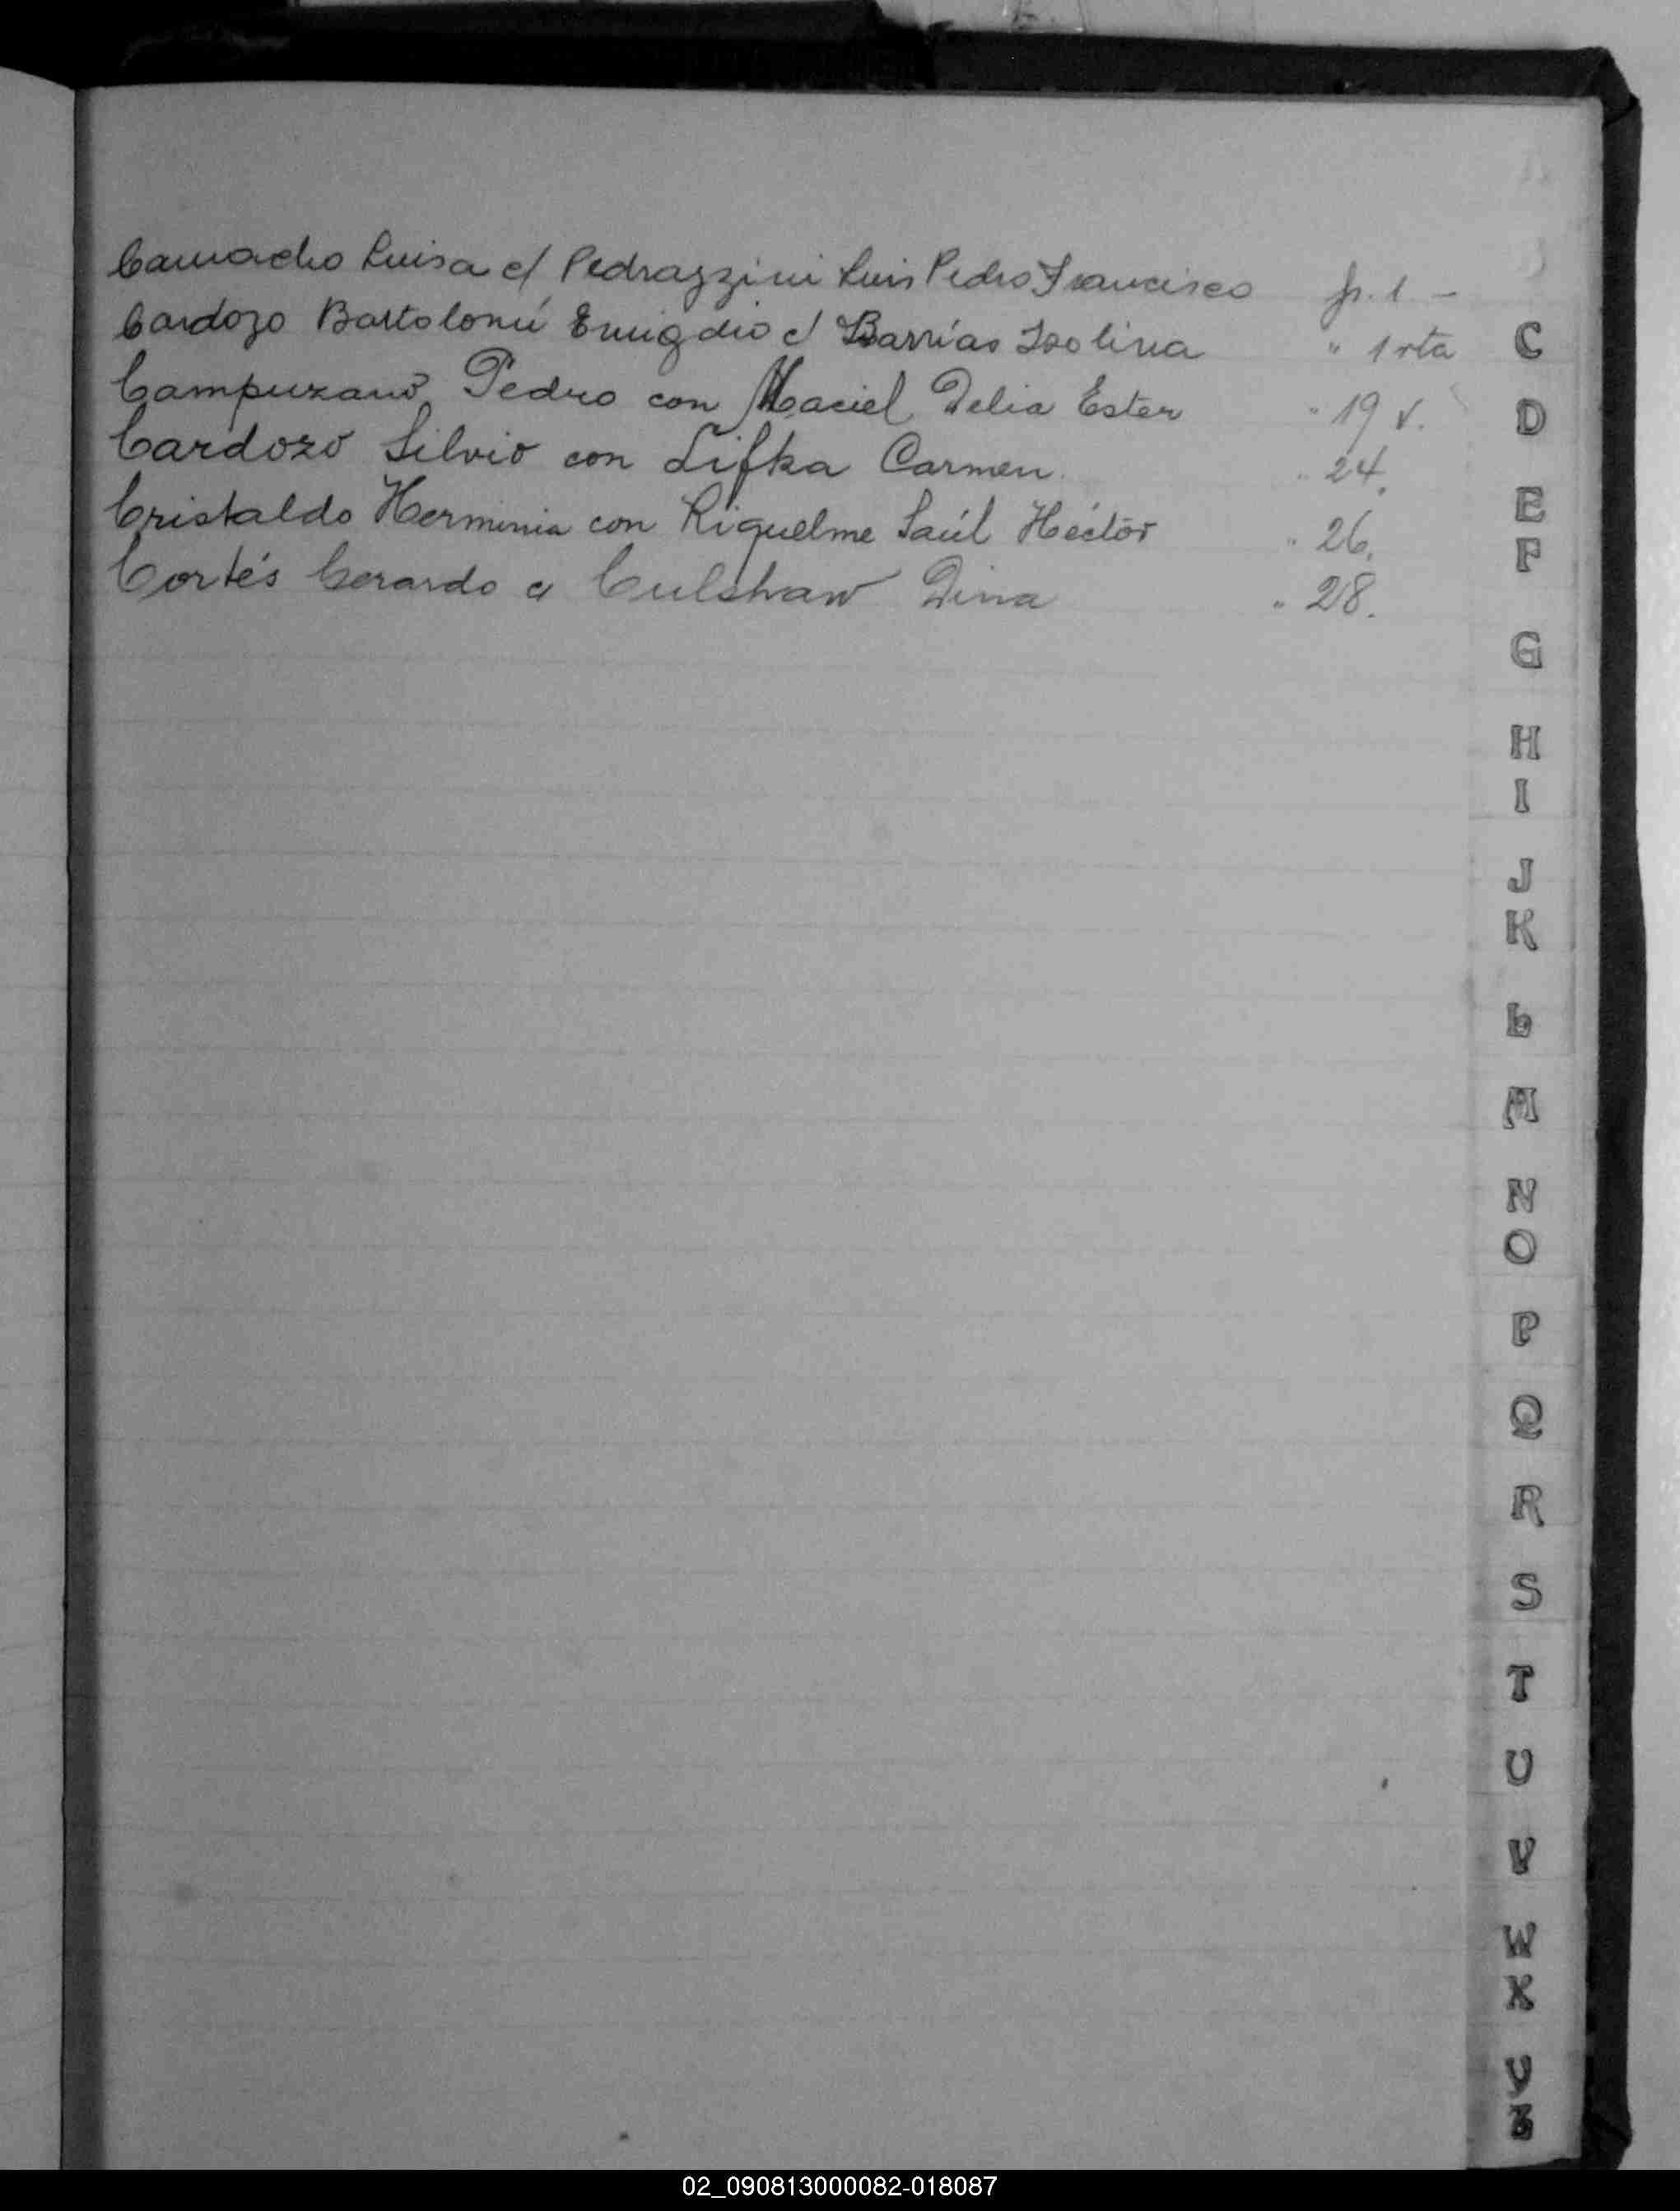 Camacho Luisa c/ Pedrazzini Luis Pedro Francisco fs. 1 -
Cardozo Bartolomé Emigdio c/ Barrías Isolina " 1 vta
Campuzano Pedro con Maciel Delia Ester " 19 v.
Cardozo Silvio con Lifka Carmen. " 24.
Cristaldo Herminia con Riquelme Saúl Héctor " 26.
Cortés Gerardo c/ Culshaw Dina " 28.
C
D
E
F
G
H
I
J
K
L
M
N
O
P
Q
R
S
T
U
V
W
X
Y
Z
02_090813000082-018087